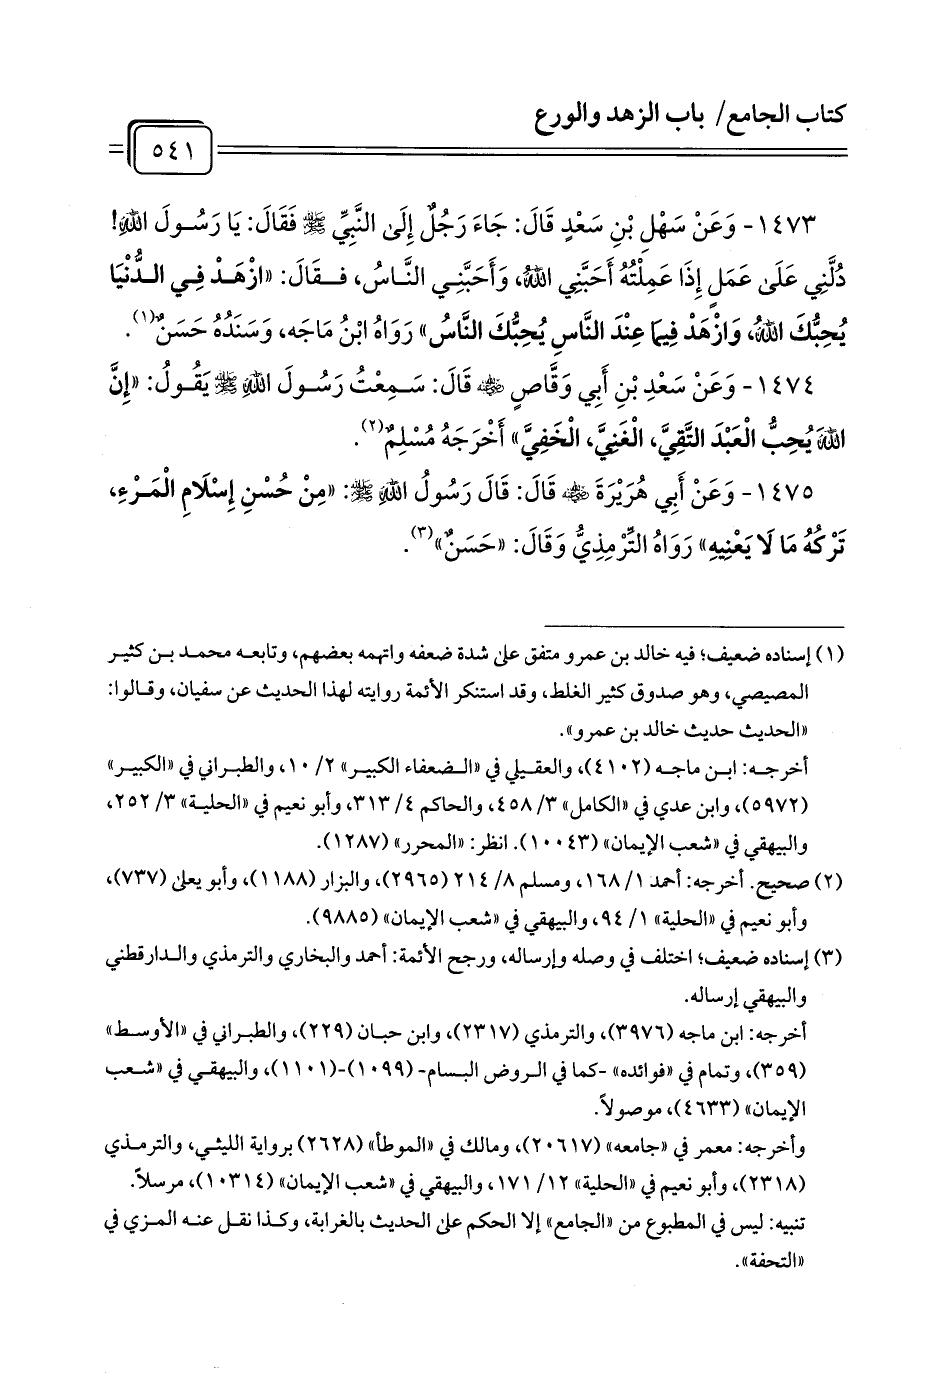 كتاب الجامع/ باب الزهد والورع
٥٤١
١٤٧٣- وَعَنْ سَهْلِ بْنِ سَعْدٍ قَالَ: جَاءَ رَجُلٌ إِلَى النَّبِيِّ ﷺ فَقَالَ: يَا رَسُولَ اللهِ!
دُلَّنِي عَلَى عَمَلٍ إِذَا عَمِلْتُهُ أَحَبَّنِي اللهُ، وَأَحَبَّنِي النَّاسُ، فَقَالَ: «ازْهَدْ فِي الدُّنْيَا
يُحِبُّكَ اللهُ، وَازْهَدْ فِيمَا عِنْدَ النَّاسِ يُحِبُّكَ النَّاسُ» رَوَاهُ ابْنُ مَاجَه، وَسَنَدُهُ حَسَنٌ(١).
١٤٧٤- وَعَنْ سَعْدِ بْنِ أَبِي وَقَّاصٍ ﵁ قَالَ: سَمِعْتُ رَسُولَ اللهِ ﷺ يَقُولُ: «إِنَّ
اللهَ يُحِبُّ الْعَبْدَ التَّقِيَّ، الْغَنِيَّ، الْخَفِيَّ» أَخْرَجَهُ مُسْلِمٌ(٢).
١٤٧٥- وَعَنْ أَبِي هُرَيْرَةَ ﵁ قَالَ: قَالَ رَسُولُ اللهِ ﷺ: «مِنْ حُسْنِ إِسْلَامِ الْمَرْءِ،
تَرْكُهُ مَا لَا يَعْنِيهِ» رَوَاهُ التِّرْمِذِيُّ وَقَالَ: «حَسَنٌ»(٣).
(١) إسناده ضعيف؛ فيه خالد بن عمرو متفق على شدة ضعفه واتهمه بعضهم، وتابعه محمد بن كثير
المصيصي، وهو صدوق كثير الغلط، وقد استنكر الأئمة روايته لهذا الحديث عن سفيان، وقالوا:
«الحديث حديث خالد بن عمرو».
أخرجه: ابن ماجه (٤١٠٢)، والعقيلي في «الضعفاء الكبير» ٢/ ١٠، والطبراني في «الكبير»
(٥٩٧٢)، وابن عدي في «الكامل» ٣/ ٤٥٨، والحاكم ٤/ ٣١٣، وأبو نعيم في «الحلية» ٣/ ٢٥٢،
والبيهقي في «شعب الإيمان» (١٠٠٤٣). انظر: «المحرر» (١٢٨٧).
(٢) صحيح. أخرجه: أحمد ١/ ١٦٨، ومسلم ٨/ ٢١٤ (٢٩٦٥)، والبزار (١١٨٨)، وأبو يعلى (٧٣٧)،
وأبو نعيم في «الحلية» ١/ ٩٤، والبيهقي في «شعب الإيمان» (٩٨٨٥).
(٣) إسناده ضعيف؛ اختلف في وصله وإرساله، ورجح الأئمة: أحمد والبخاري والترمذي والدارقطني
والبيهقي إرساله.
أخرجه: ابن ماجه (٣٩٧٦)، والترمذي (٢٣١٧)، وابن حبان (٢٢٩)، والطبراني في «الأوسط»
(٣٥٩)، وتمام في «فوائده» -كما في الروض البسام- (١٠٩٩)-(١١٠١)، والبيهقي في «شعب
الإيمان» (٤٦٣٣)، موصولاً.
وأخرجه: معمر في «جامعه» (٢٠٦١٧)، ومالك في «الموطأ» (٢٦٢٨) برواية الليثي، والترمذي
(٢٣١٨)، وأبو نعيم في «الحلية» ١٢/ ١٧١، والبيهقي في «شعب الإيمان» (١٠٣١٤)، مرسلاً.
تنبيه: ليس في المطبوع من «الجامع» إلا الحكم على الحديث بالغرابة، وكذا نقل عنه المزي في
«التحفة».